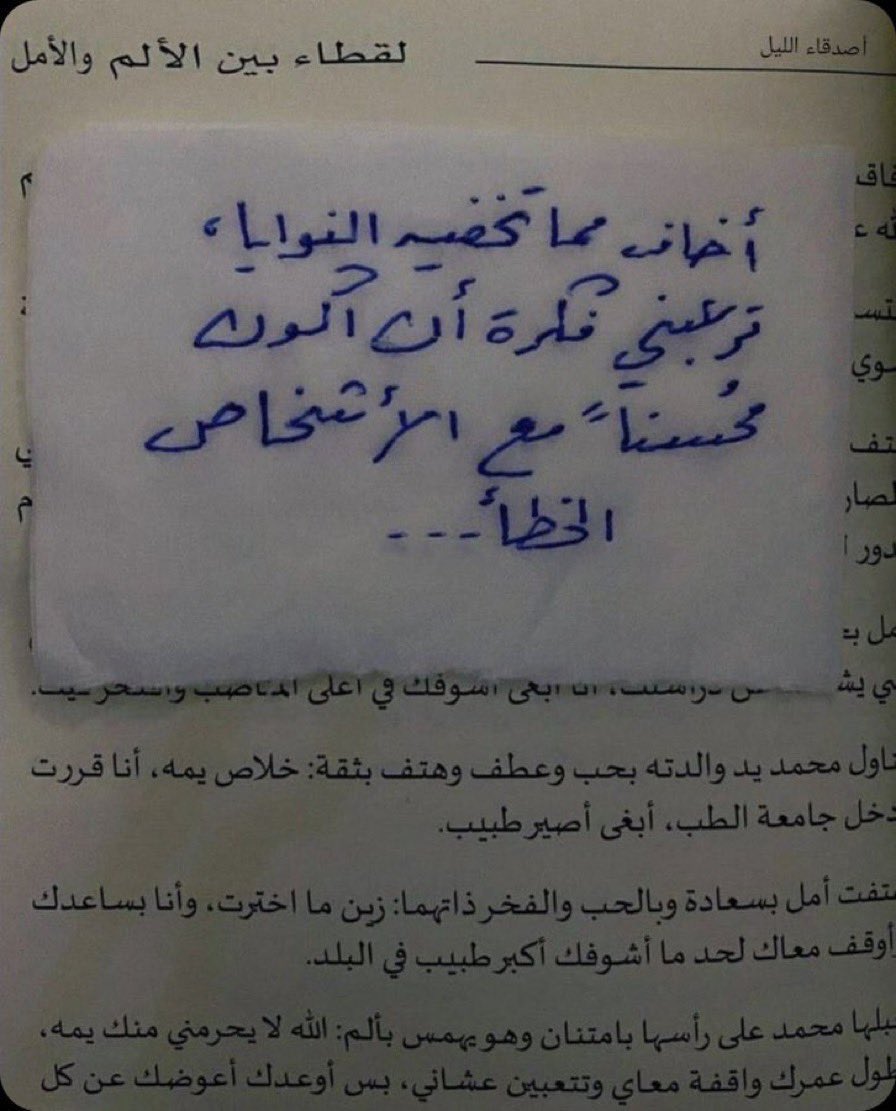 أصدقاء الليل
لقطاء بين الألم والأمل
أخاف مما تخفيه النوايا،
ترعبني فكرة أن أكون
مُحسناً مع الأشخاص
الخطأ...
أنا أبغى أشوفك في أعلى المناصب
ناول محمد يد والدته بحب وعطف وهتف بثقة: خلاص يمه، أنا قررت
دخل جامعة الطب، أبغى أصير طبيب.
هتفت أمل بسعادة وبالحب والفخر ذاتهما: زين ما اخترت، وأنا بساعدك
وأوقف معاك لحد ما أشوفك أكبر طبيب في البلد.
قبلها محمد على رأسها بامتنان وهو يهمس بألم: الله لا يحرمني منك يمه،
طول عمرك واقفة معاي وتتعبين عشاني، بس أوعدك أعوضك عن كل